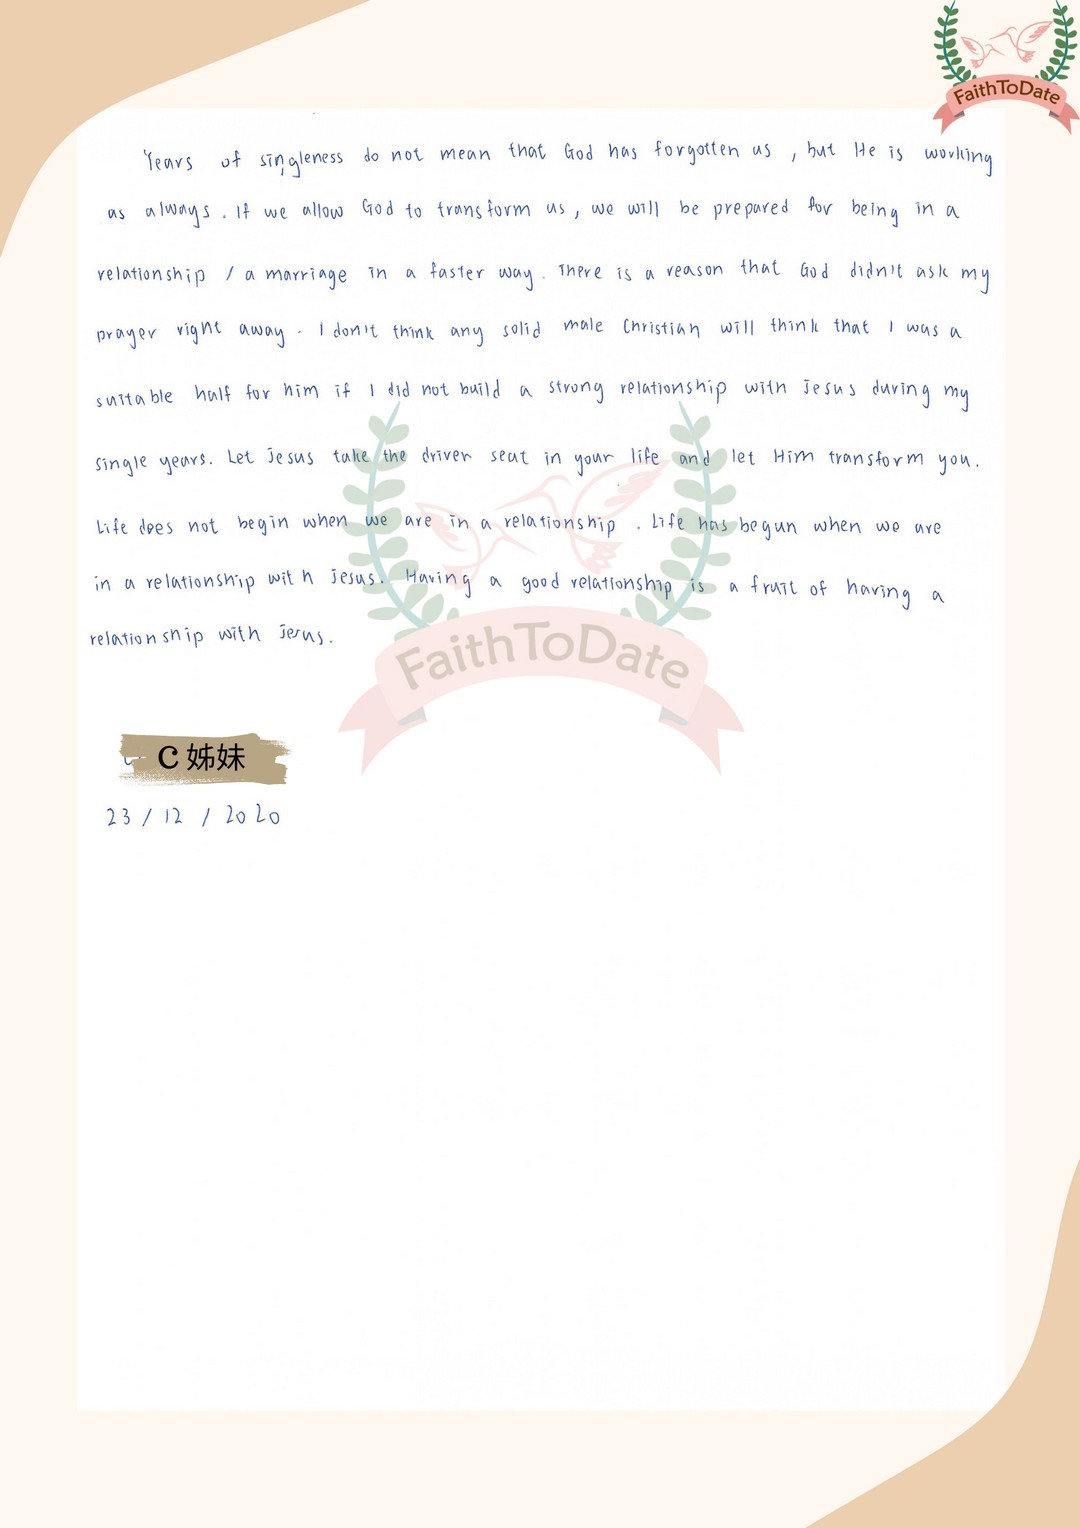 FaithToDate
Years of singleness do not mean that God has forgotten us , but He is working
as always . If we allow God to transform us , we will be prepared for being in a
relationship / a marriage in a faster way . There is a reason that God didn't ask my
prayer right away . I don't think any solid male Christian will think that I was a
suitable half for him if I did not build a strong relationship with Jesus during my
single years. Let Jesus take the driver seat in your life and let Him transform you.
Life does not begin when we are in a relationship . Life has begun when we are
in a relationship with Jesus. Having a good relationship is a fruit of having a
relationship with Jesus.
FaithToDate
C 姊妹
23 / 12 / 2020